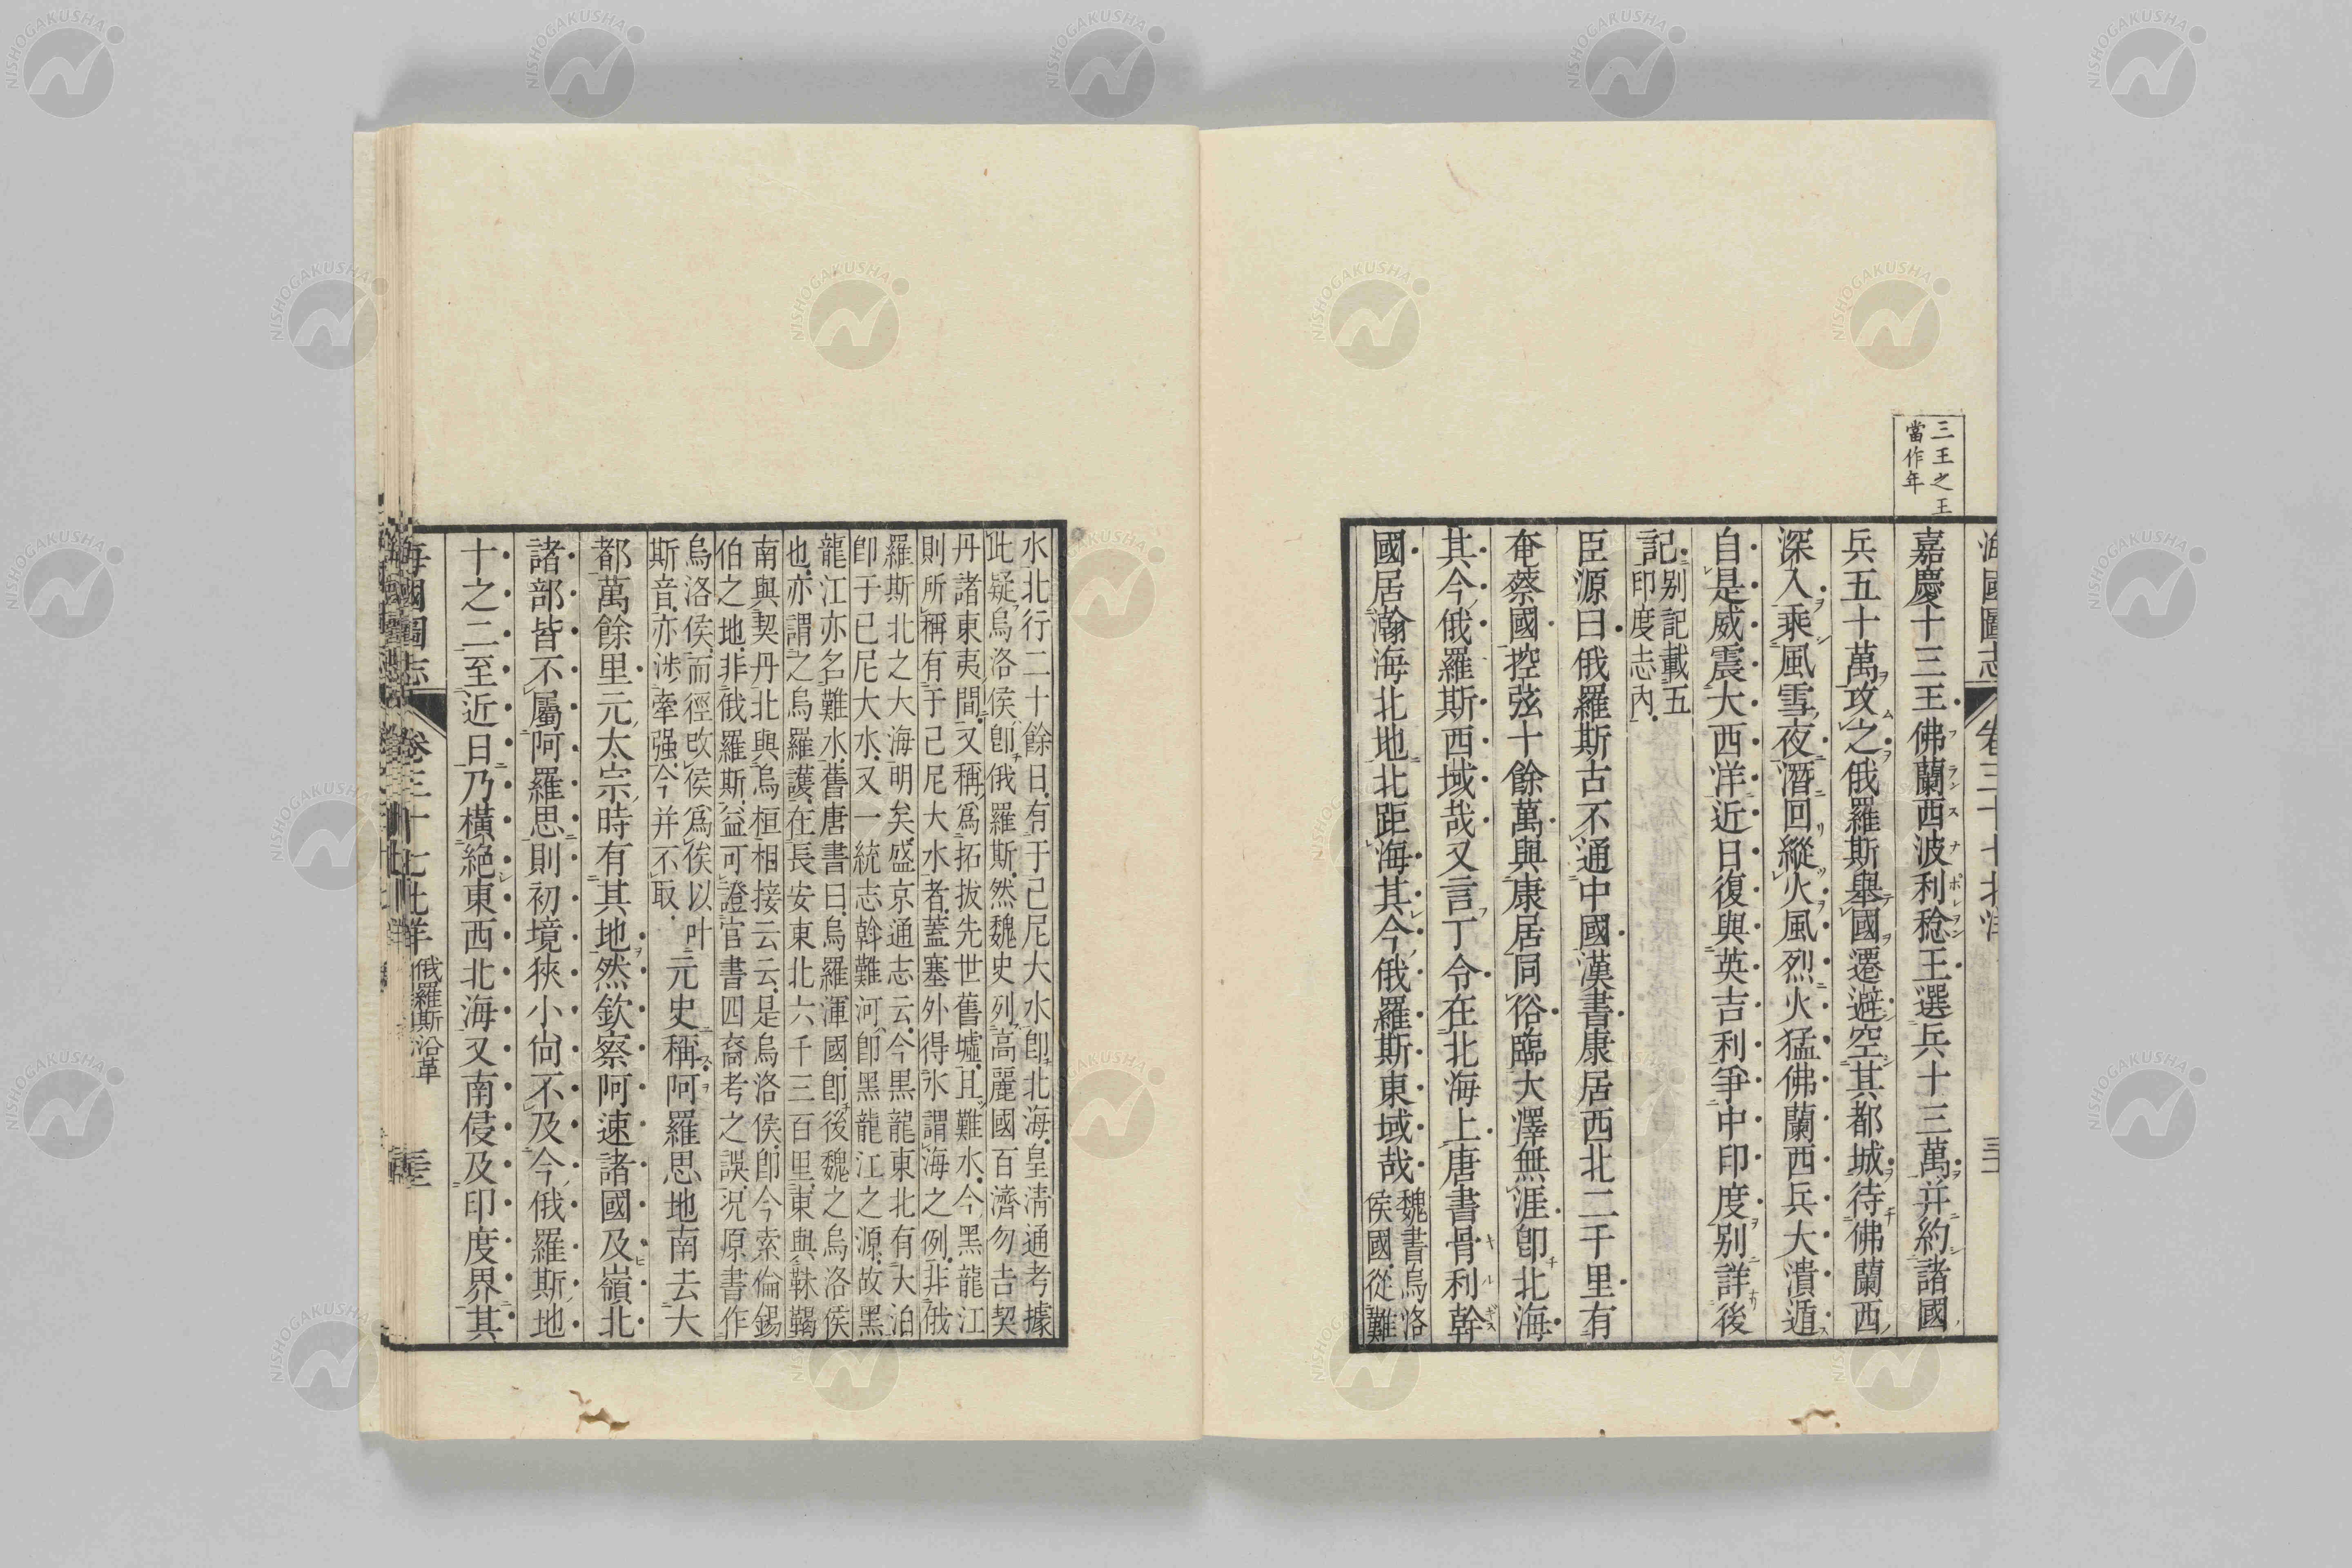 三王之王
當作年
海國圖志 卷三十七 北洋
嘉慶十三王佛蘭西波利稔王選兵十三萬并約諸國
兵五十萬攻之俄羅斯舉國遷避空其都城待佛蘭西
深入乘風雪夜潛回縱火風烈火猛佛蘭西兵大潰遁
自是威震大西洋近日復與英吉利爭中印度別詳後
記別記載五
印度志內
臣源曰俄羅斯古不通中國漢書康居西北二千里有
奄蔡國控弦十餘萬與康居同俗臨大澤無涯卽北海
其今俄羅斯西域哉又言丁令在北海上唐書骨利幹
國居瀚海北地北距海其今俄羅斯東域哉魏書烏洛
侯國從難
水北行二十餘日有于己尼大水卽北海皇淸通考據
此疑烏洛侯卽俄羅斯然魏史列高麗國百濟勿吉契
丹諸東夷間又稱爲拓拔先世舊墟且難水今黑龍江
則所稱有于己尼大水者蓋塞外得水謂海之例非俄
羅斯北之大海明矣盛京通志云今黑龍東北有大泊
卽于已尼大水又一統志斡難河卽黑龍江之源故黑
龍江亦名難水舊唐書曰烏羅渾國卽後魏之烏洛侯
也亦謂之烏羅護在長安東北六千三百里東與靺鞨
南與契丹北與烏桓相接云云是烏洛侯卽今索倫錫
伯之地非俄羅斯益可證官書四裔考之誤況原書作
烏洛侯而徑改侯爲俟以叶
斯音亦涉牽强今并不取
元史稱阿羅思地南去大
都萬餘里元太宗時有其地然欽察阿速諸國及嶺北
諸部皆不屬阿羅思則初境狹小尙不及今俄羅斯地
十之二至近日乃橫絕東西北海又南侵及印度界其
海國圖志 卷三十七 北洋 俄羅斯沿革